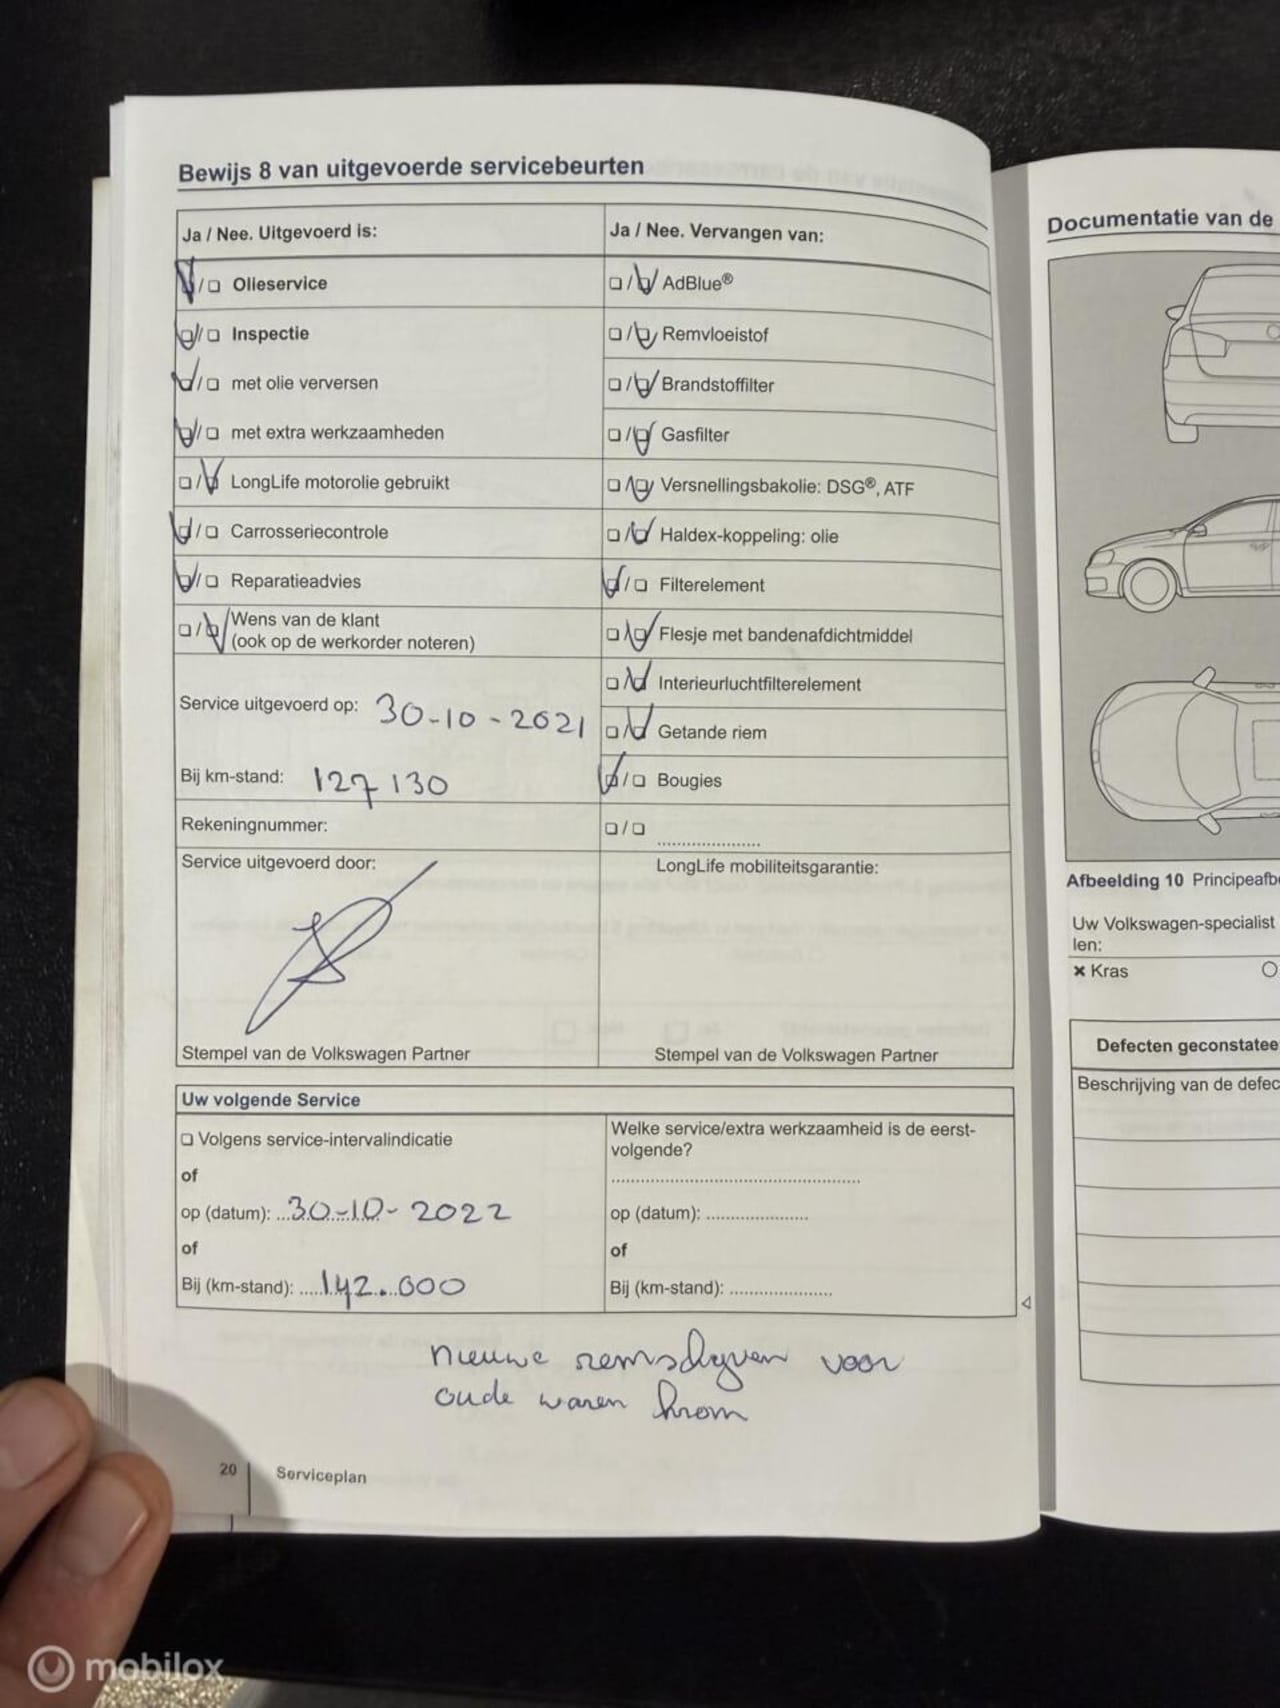 Bewijs 8 van uitgevoerde servicebeurten
Ja / Nee. Uitgevoerd is:
Olieservice
Inspectie
met olie verversen
met extra werkzaamheden
LongLife motorolie gebruikt
Carrosseriecontrole
Reparatieadvies
Wens van de klant
(ook op de werkorder noteren)
Service uitgevoerd op: 30-10-2021
Bij km-stand: 127 130
Rekeningnummer:
Service uitgevoerd door:
Stempel van de Volkswagen Partner
Ja / Nee. Vervangen van:
AdBlue®
Remvloeistof
Brandstoffilter
Gasfilter
Versnellingsbakolie: DSG®, ATF
Haldex-koppeling: olie
Filterelement
Flesje met bandenafdichtmiddel
Interieurluchtfilterelement
Getande riem
Bougies
LongLife mobiliteitsgarantie:
Stempel van de Volkswagen Partner
Uw volgende Service
Volgens service-intervalindicatie
of
op (datum): 30-10-2022
of
Bij (km-stand): 142.000
Welke service/extra werkzaamheid is de eerst-
volgende?
op (datum):
of
Bij (km-stand):
nieuwe remschyven voor
oude waren krom
20
Serviceplan
Documentatie van de
Afbeelding 10 Principeafb
Uw Volkswagen-specialist
len:
× Kras
Defecten geconstatee
Beschrijving van de defec
mobilox